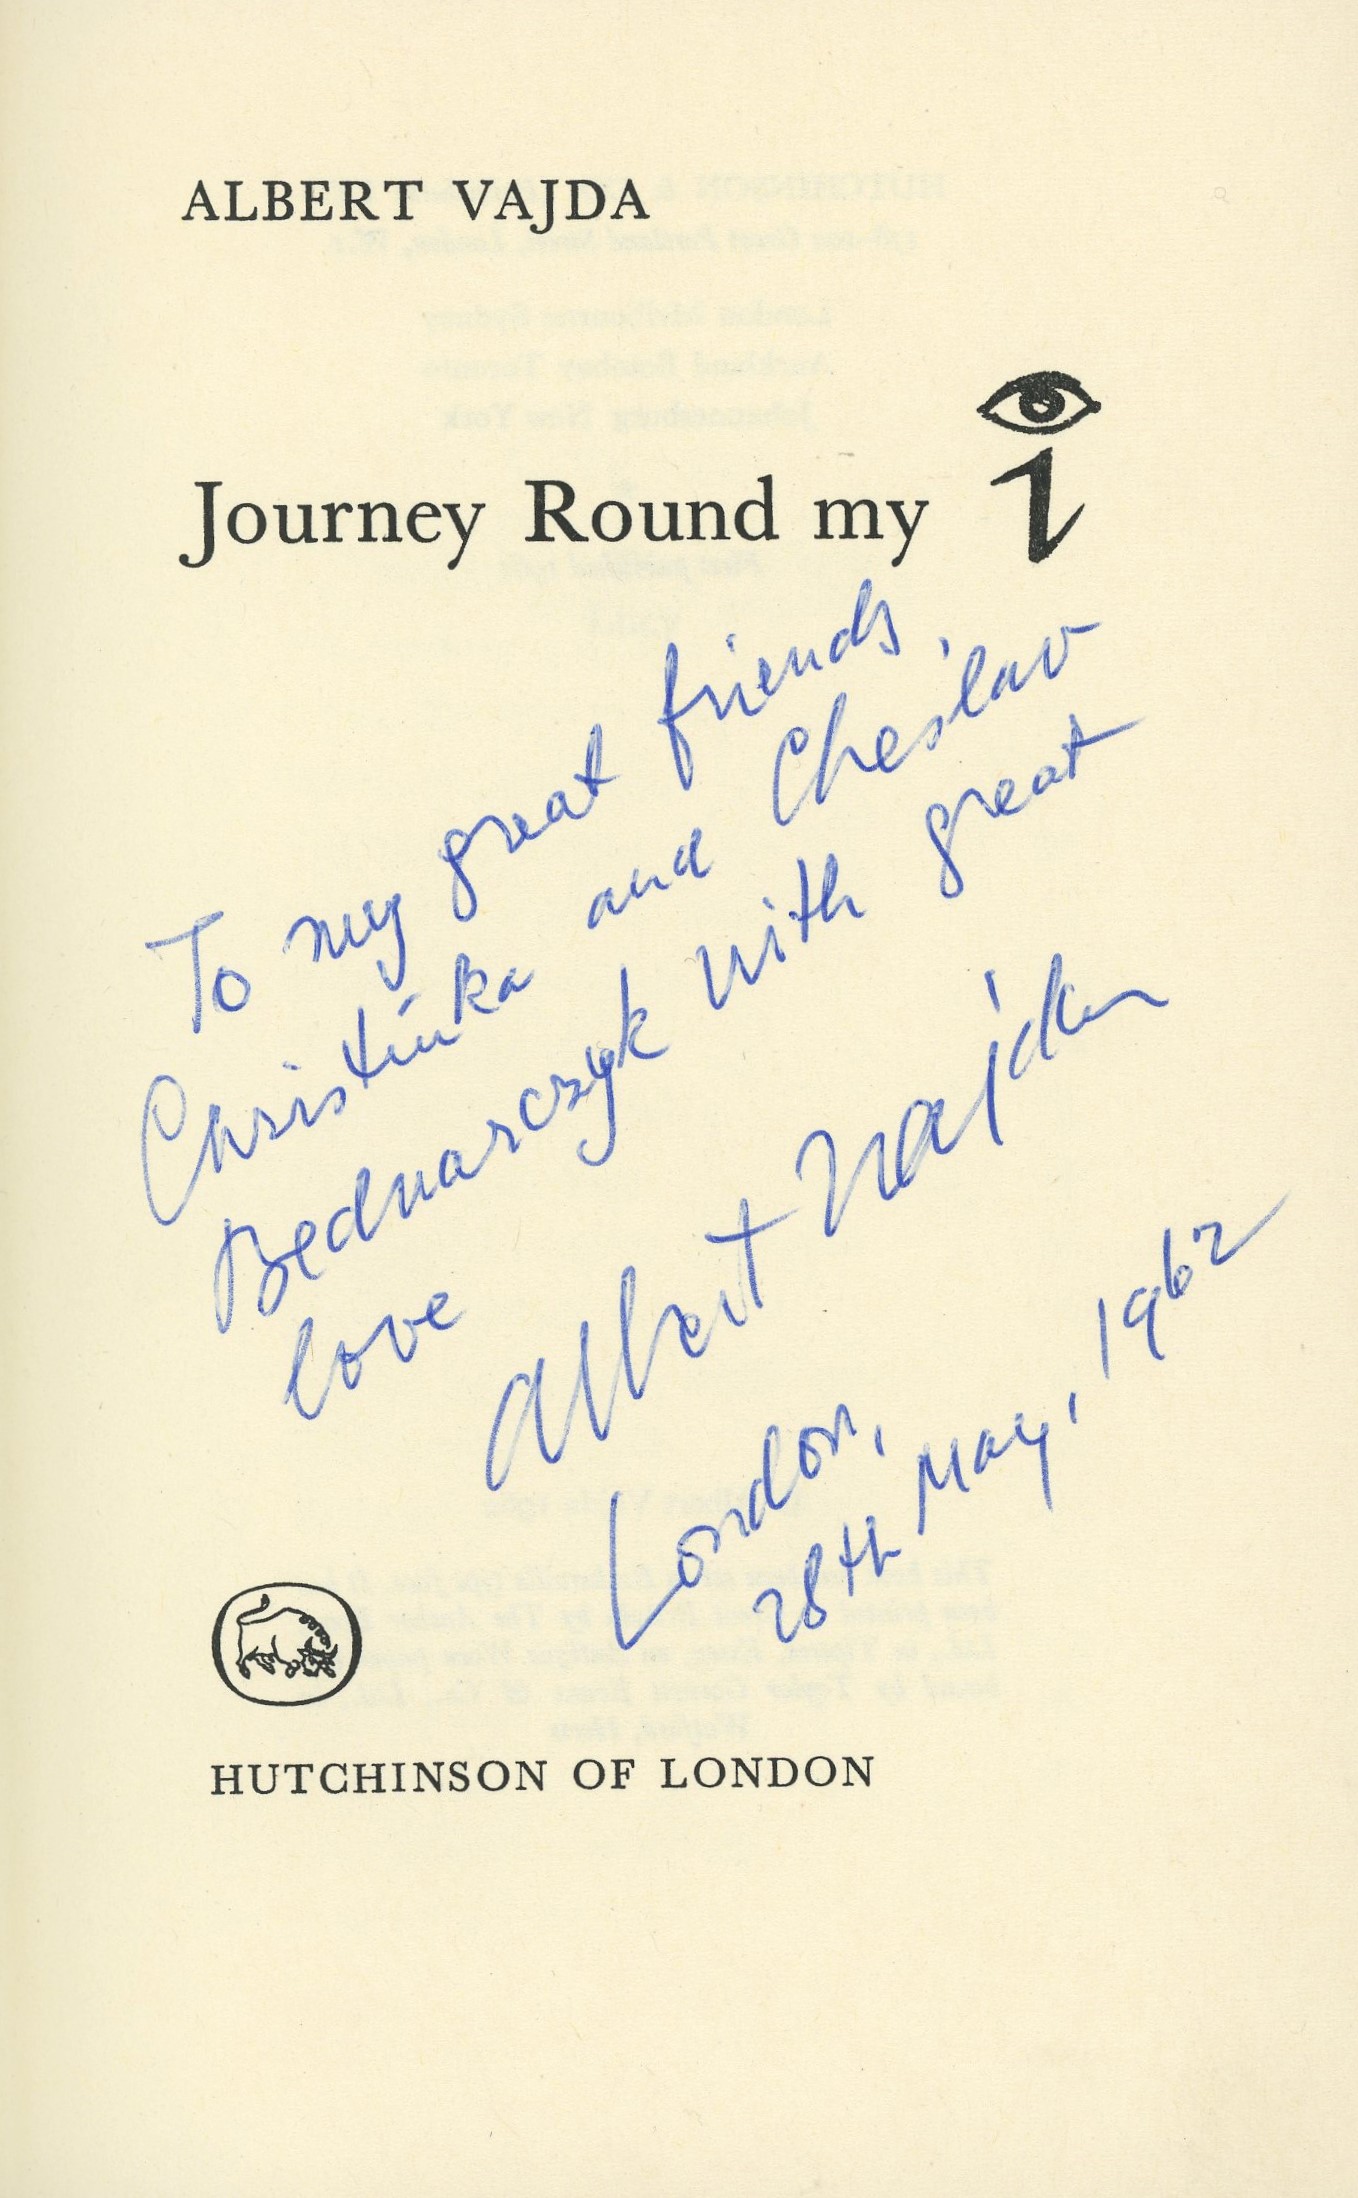 ALBERT VAJDA
Journey Round my i
To my great friends,
Christinka and Cheslav
Bednarczyk with great
love
Albert Vajda
London,
28th May, 1962
HUTCHINSON OF LONDON